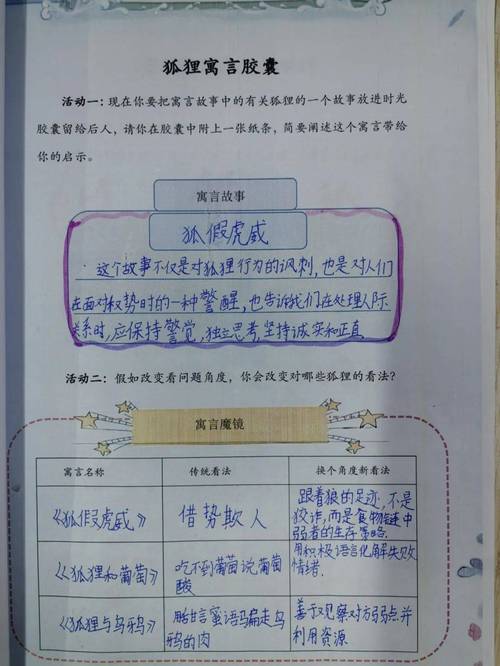 狐狸寓言胶囊
活动一：现在你要把寓言故事中的有关狐狸的一个故事放进时光
胶囊留给后人，请你在胶囊中附上一张纸条，简要阐述这个寓言带给
你的启示。
寓言故事
狐假虎威
这个故事不仅是对狐狸行为的讽刺，也是对人们
在面对权势时的一种警醒，也告诉我们在处理人际
关系时，应保持警觉，独立思考，坚持诚实和正直
活动二：假如改变看问题角度，你会改变对哪些狐狸的看法？
寓言魔镜
寓言名称 传统看法 换个角度新看法
《狐假虎威》
借势欺人
跟着狼的足迹，不是
狡诈，而是食物链中
弱者的生存策略
《狐狸和葡萄》
吃不到葡萄说葡萄
酸
用积极语言化解失败
情绪.
《狐狸与乌鸦》
用甜言蜜语骗走乌
鸦的肉
善于观察对方弱点并
利用资源